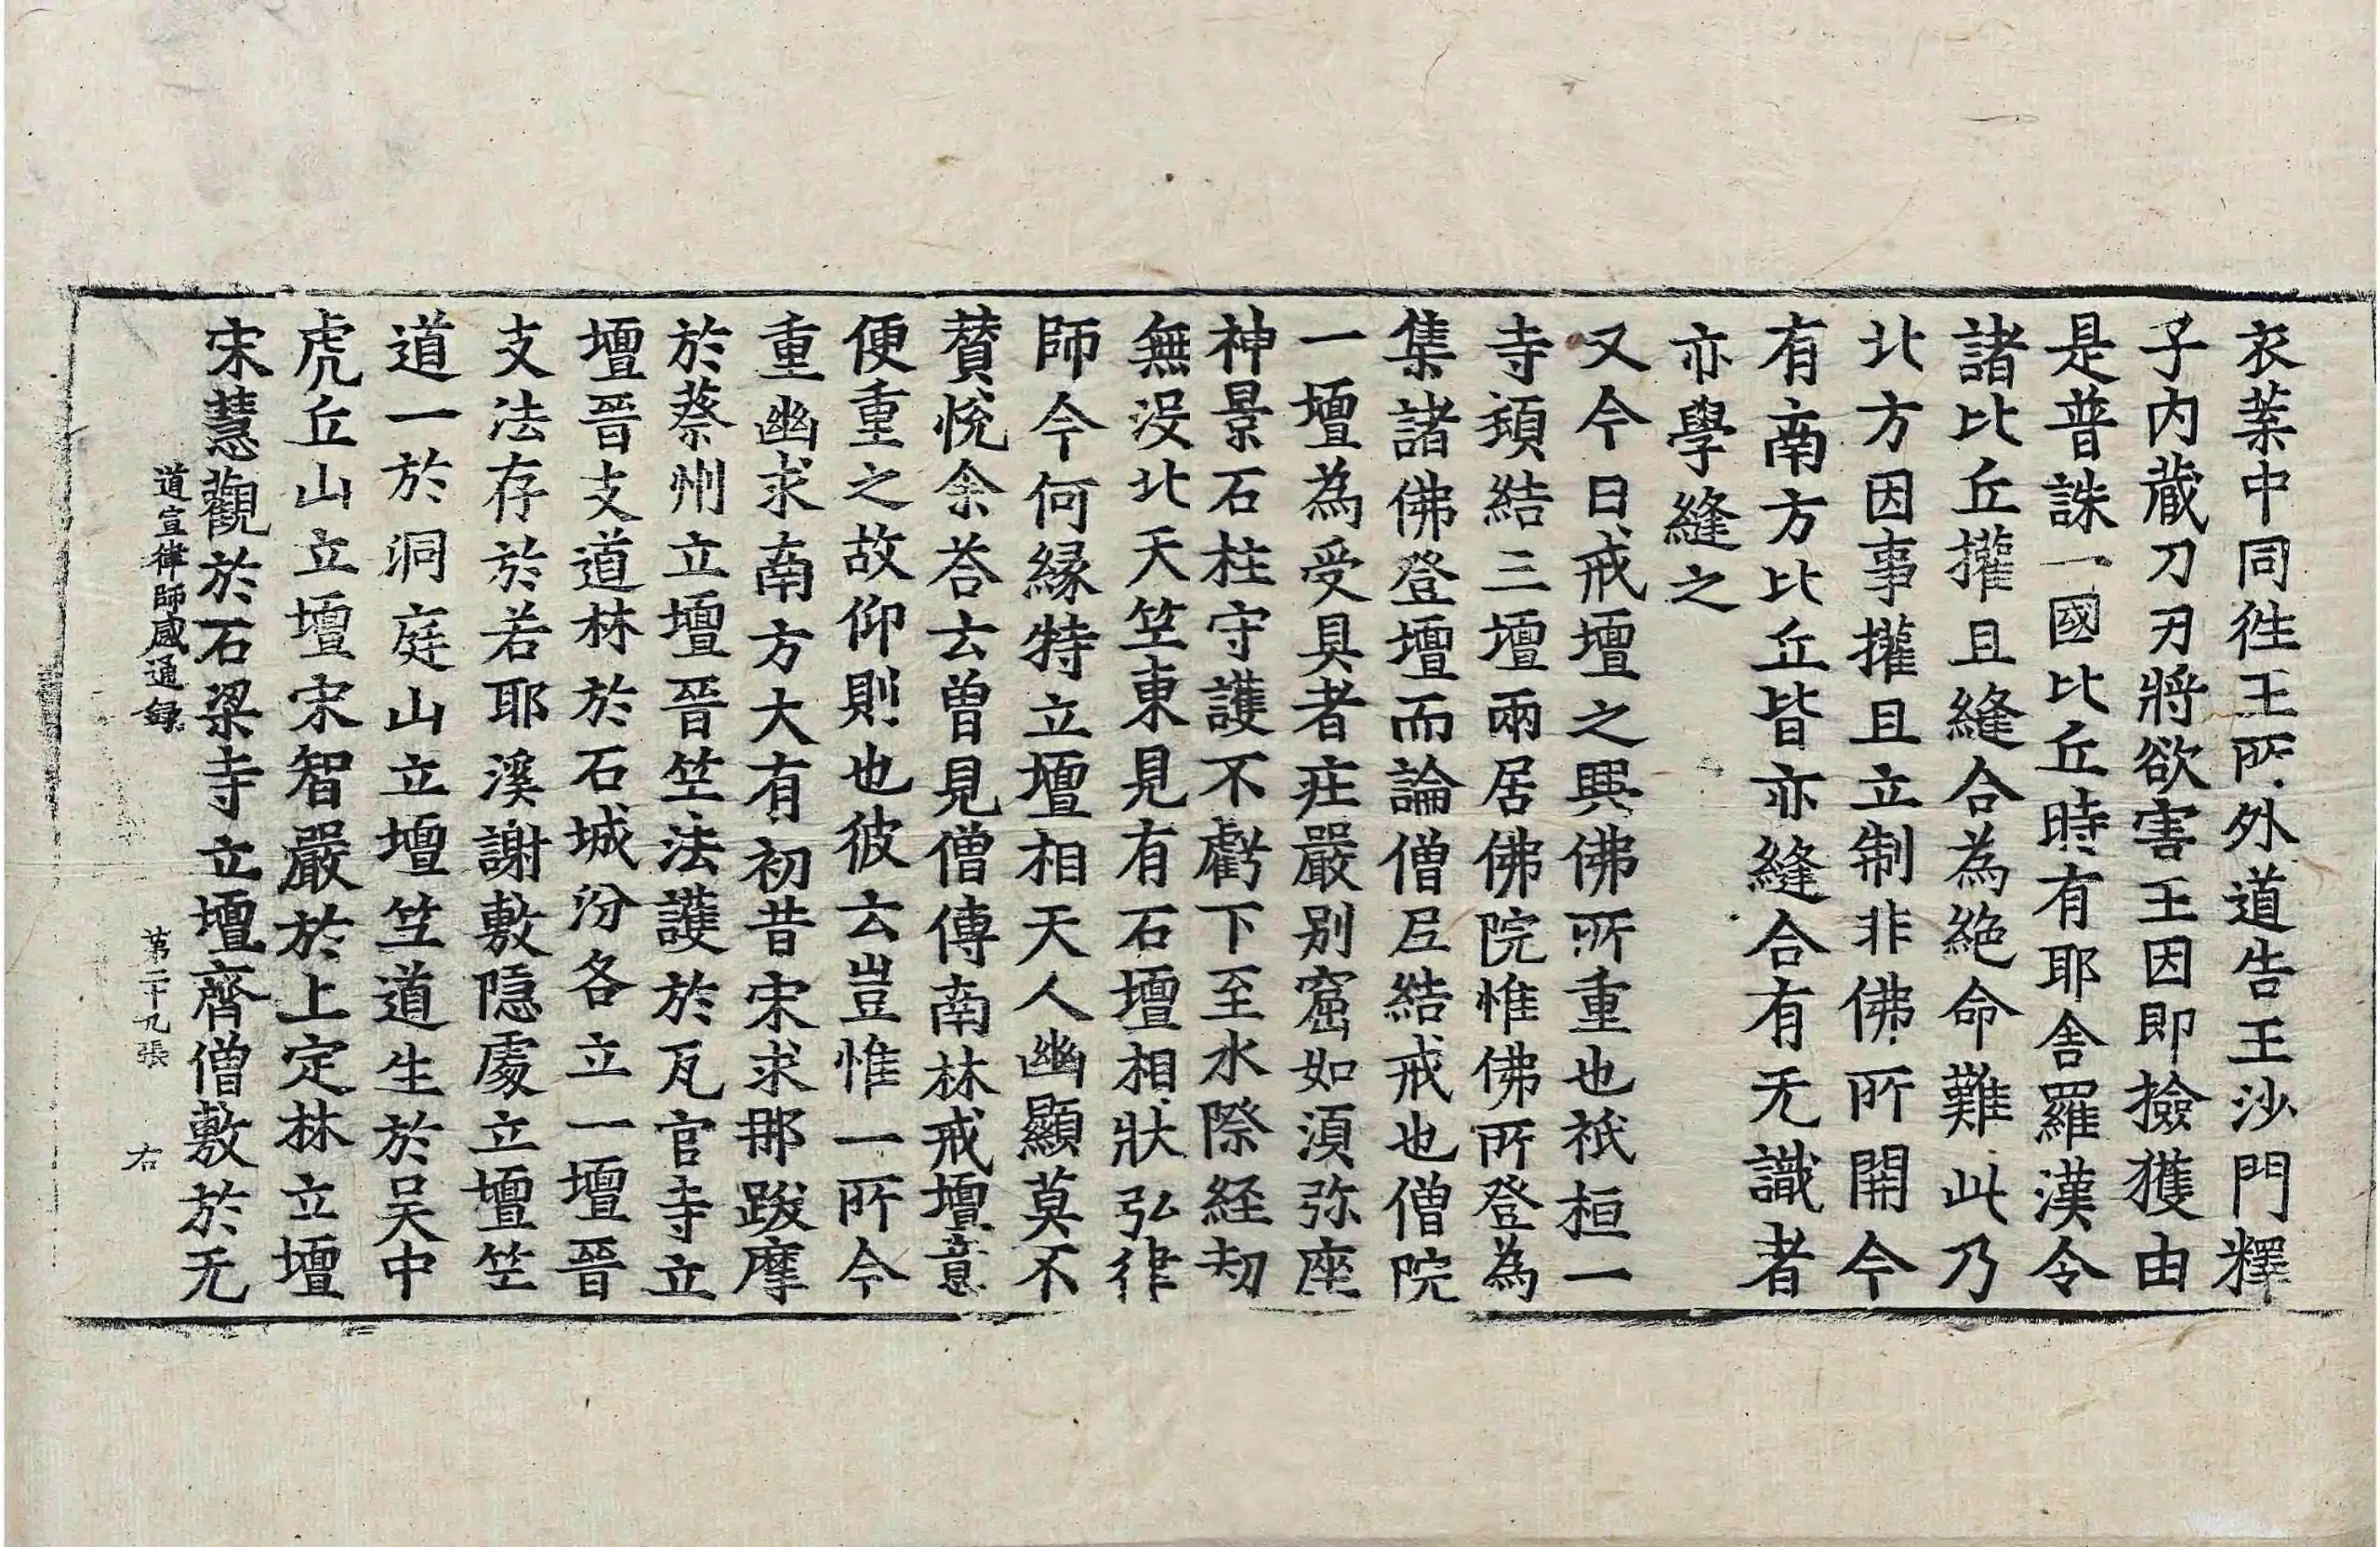 衣葉中同徃王所外道告王沙門釋
子內蔵刀刃將欲害王因即撿獲由
是普誅一國比丘時有耶舍羅漢令
諸比丘權且縫合為絶命難此乃
北方因事權且立制非佛所開今
有南方比丘皆亦縫合有无識者
亦學縫之
又今日戒壇之興佛所重也祇桓一
寺頓結三壇兩居佛院惟佛所登為
集諸佛登壇而論僧尼結戒也僧院
一壇為受具者㽵嚴别窟如湏弥座
神景石柱守護不虧下至水際経刼
無没北天竺東見有石壇相狀弘律
師今何縁特立壇相天人幽顯莫不
賛悅余荅云曾見僧傳南林戒壇意
便重之故仰則也彼云豈惟一所今
重幽求南方大有初昔宋求那跋摩
於蔡州立壇晉竺法護於瓦官寺立
壇晉支道林於石城汾各立一壇晉
支法存於若耶溪謝敷隠處立壇竺
道一於洞庭山立壇竺道生於吴中
虎丘山立壇宋智嚴於上定林立壇
宋慧觀於石梁寺立壇齊僧敷於无
道宣律師感通録 第二十九張 右